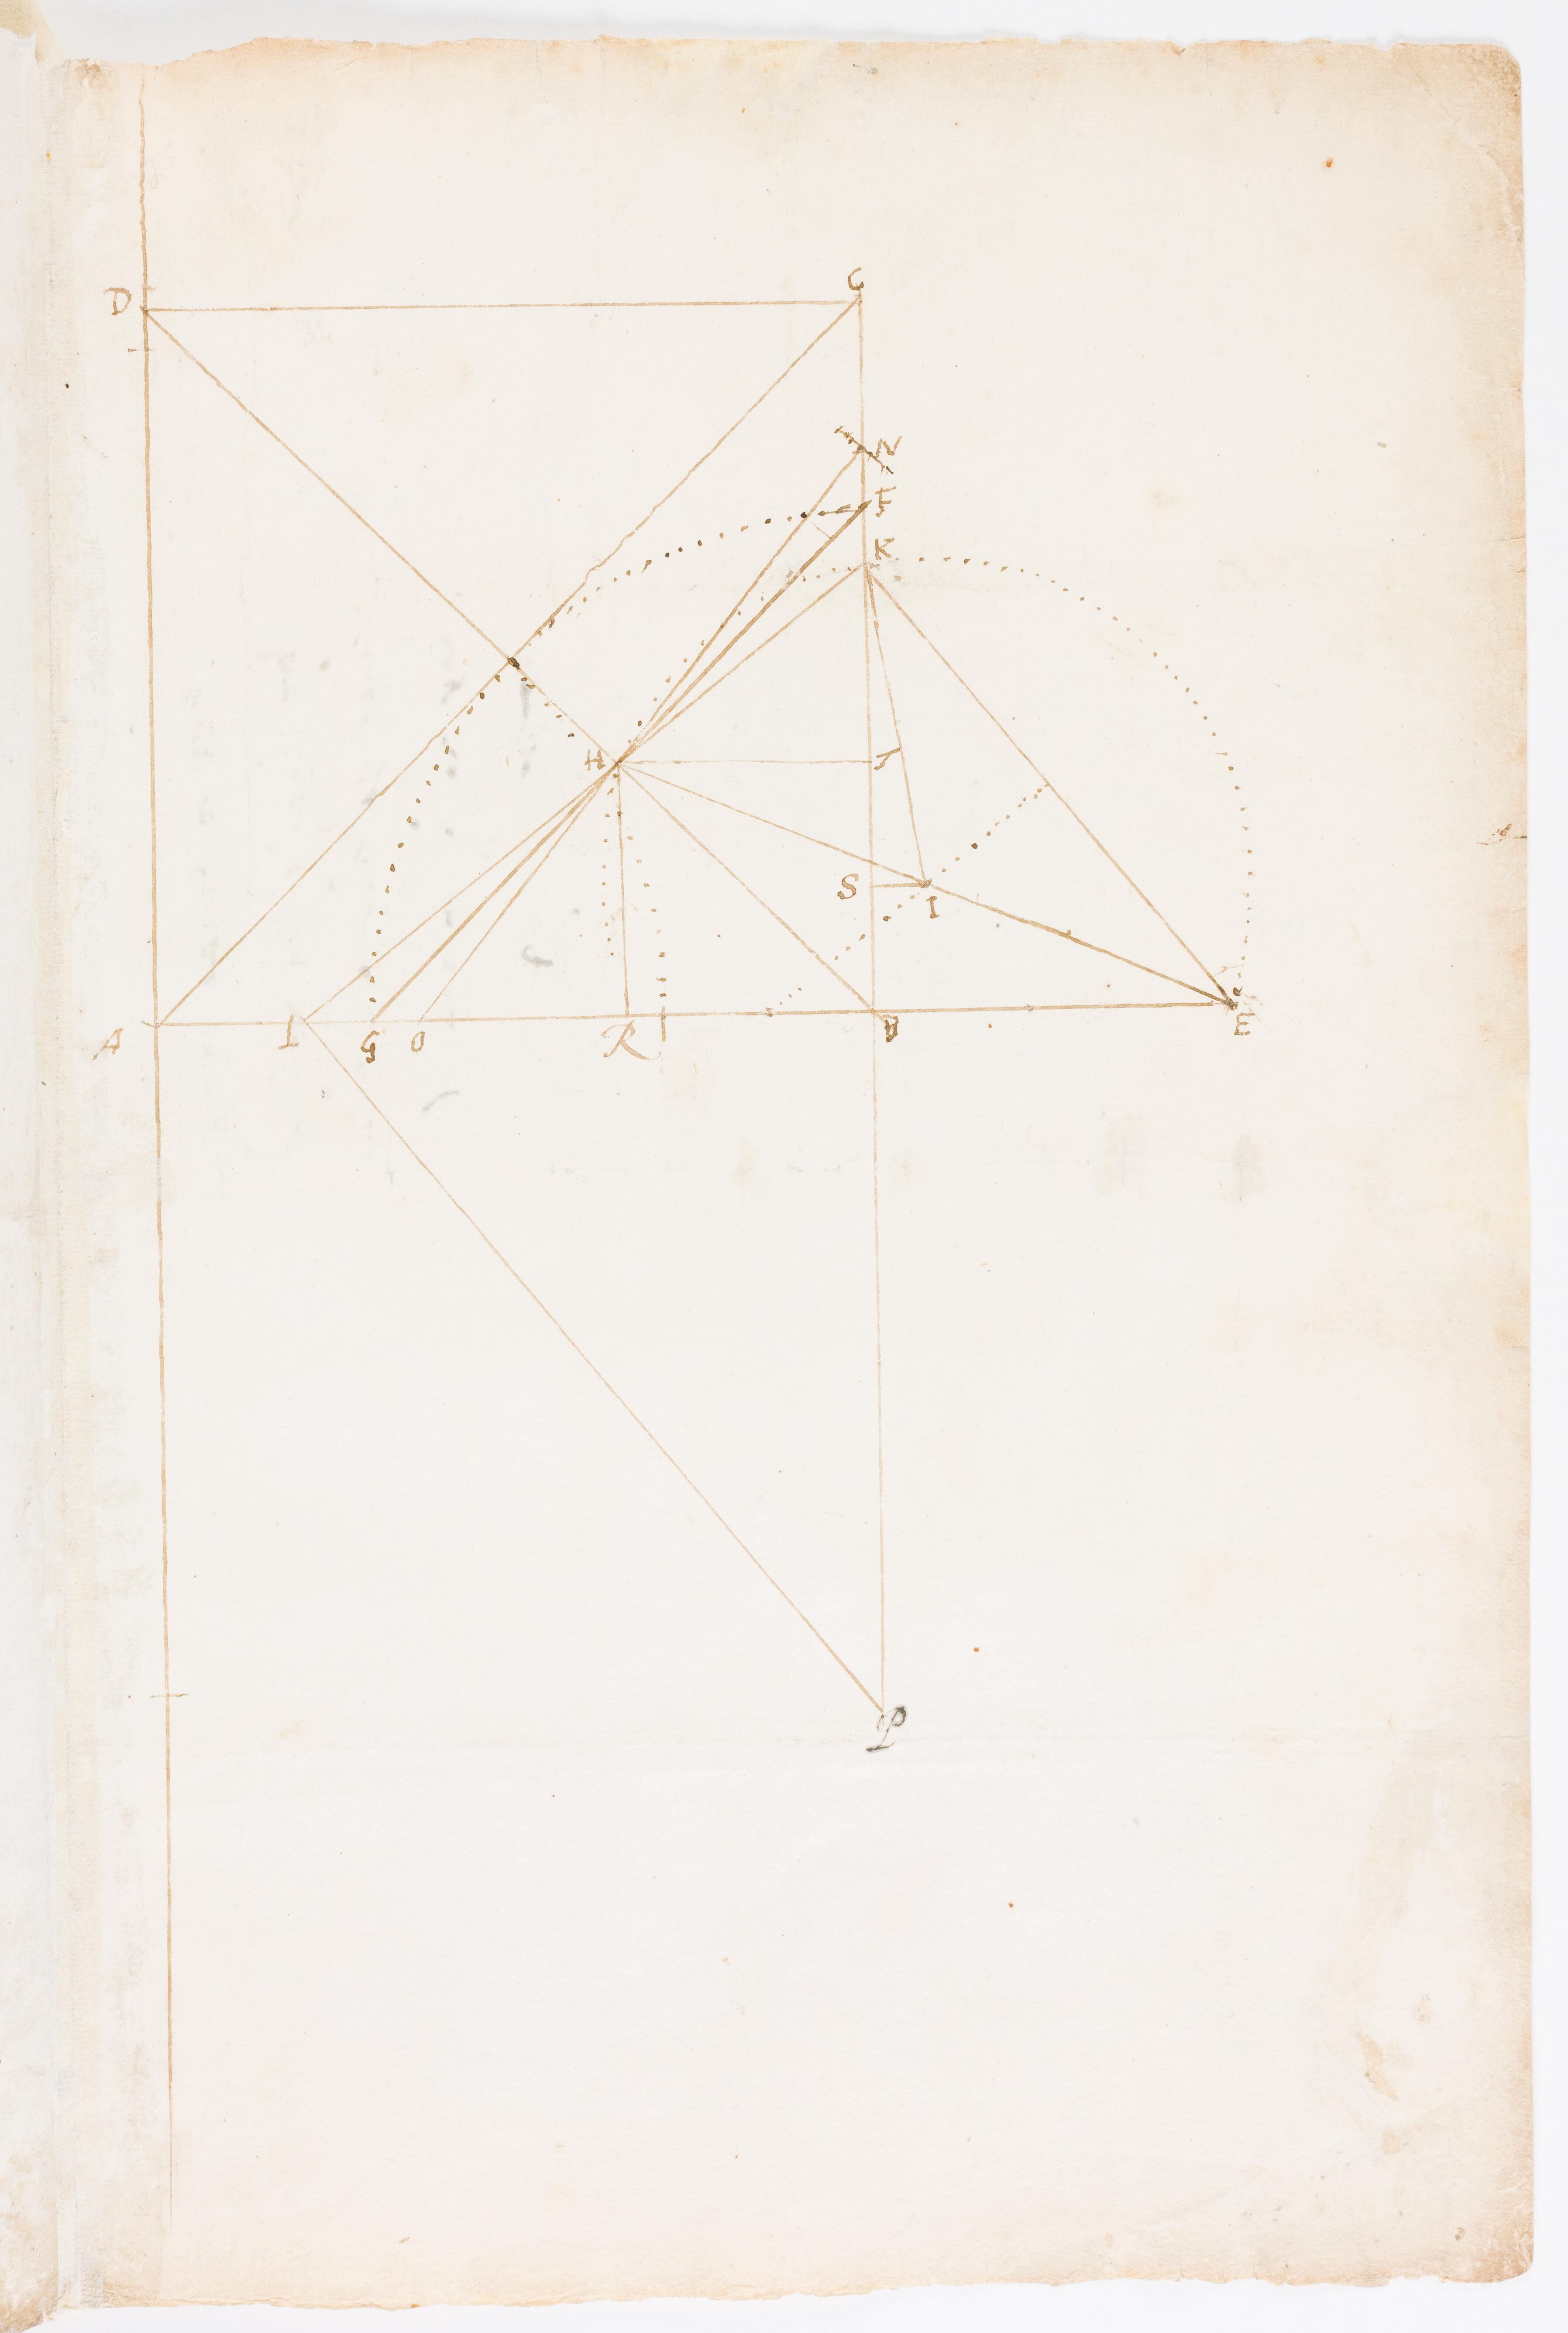 D
C
N
F
K
H
S
I
A
L
G
O
R
B
E
P